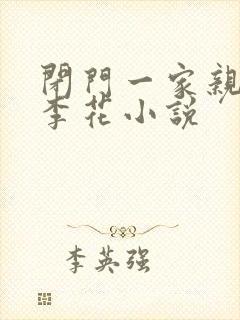 閉門一家親
李花小説
李英强